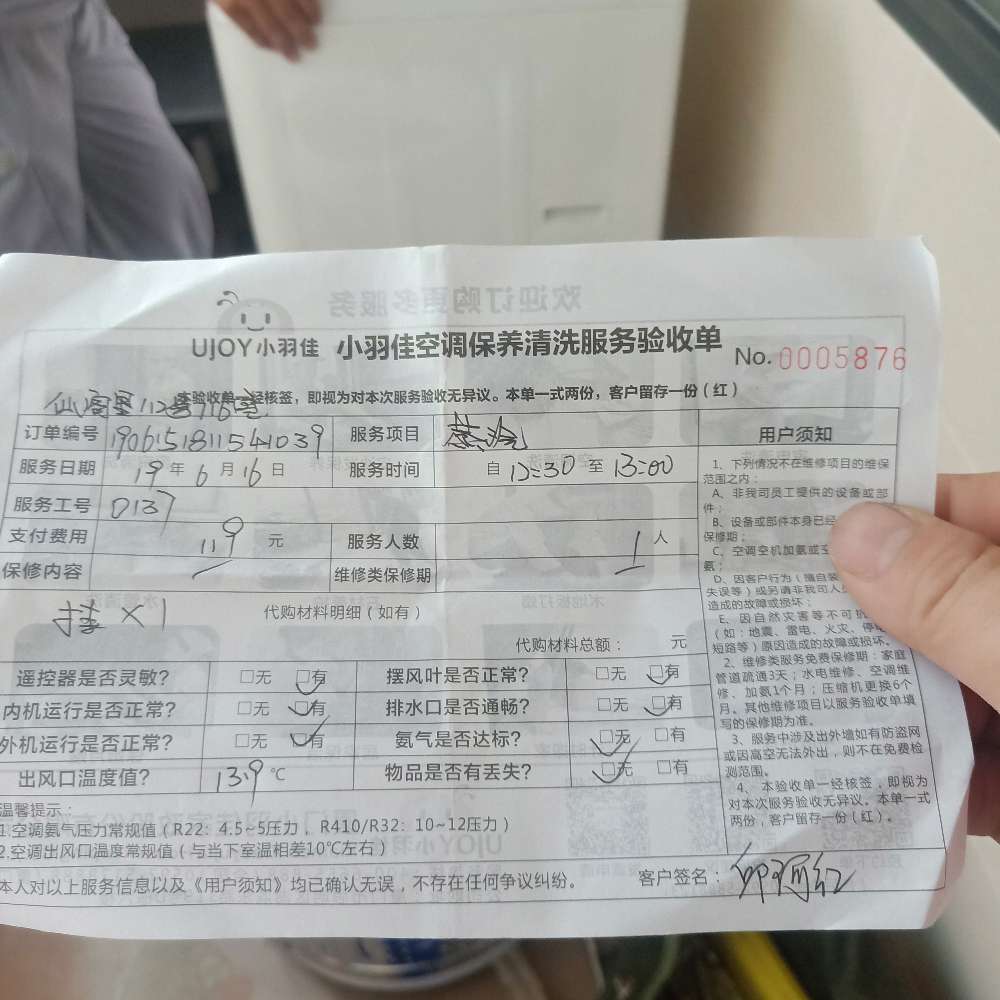 UJOY小羽佳 小羽佳空调保养清洗服务验收单 No.0005876
本验收单一经核签，即视为对本次服务验收无异议。本单一式两份，客户留存一份（红）
订单编号 1906151811541039 服务项目 蒸洗
服务日期 19年6月16日 服务时间 自12:30至13:00
服务工号 0137
支付费用 119元 服务人数 1人
保修内容 维修类保修期
挂X1 代购材料明细（如有）
代购材料总额： 元
遥控器是否灵敏？ □无 □有 摆风叶是否正常？ □无 □有
内机运行是否正常？ □无 □有 排水口是否通畅？ □无 □有
外机运行是否正常？ □无 □有 氨气是否达标？ □无 □有
出风口温度值？ 13.9℃ 物品是否有丢失？ □无 □有
温馨提示：
1.空调氨气压力常规值（R22：4.5~5压力，R410/R32：10~12压力）
2.空调出风口温度常规值（与当下室温相差10℃左右）
本人对以上服务信息以及《用户须知》均已确认无误，不存在任何争议纠纷。 客户签名：
用户须知
1、下列情况不在维修项目的维保
范围之内：
A、非我司员工提供的设备或部
件；
B、设备或部件本身已经
保修期；
C、空调空机加氨或
氨；
D、因客户行为（擅自装
失误等）或另请非我司人
造成的故障或损坏；
E、因自然灾害等不可抗
（如：地震、雷电、火灾、停电
短路等）原因造成的故障或损坏。
2、维修类服务免费保修期：家庭
管道疏通3天；水电维修、空调维
修、加氨1个月；压缩机更换6个
月。其他维修项目以服务验收单填
写的保修期为准。
3、服务中涉及出外墙如有防盗网
或因高空无法外出，则不在免费检
测范围。
4、本验收单一经核签，即视为
对本次服务验收无异议。本单一式
两份，客户留存一份（红）。